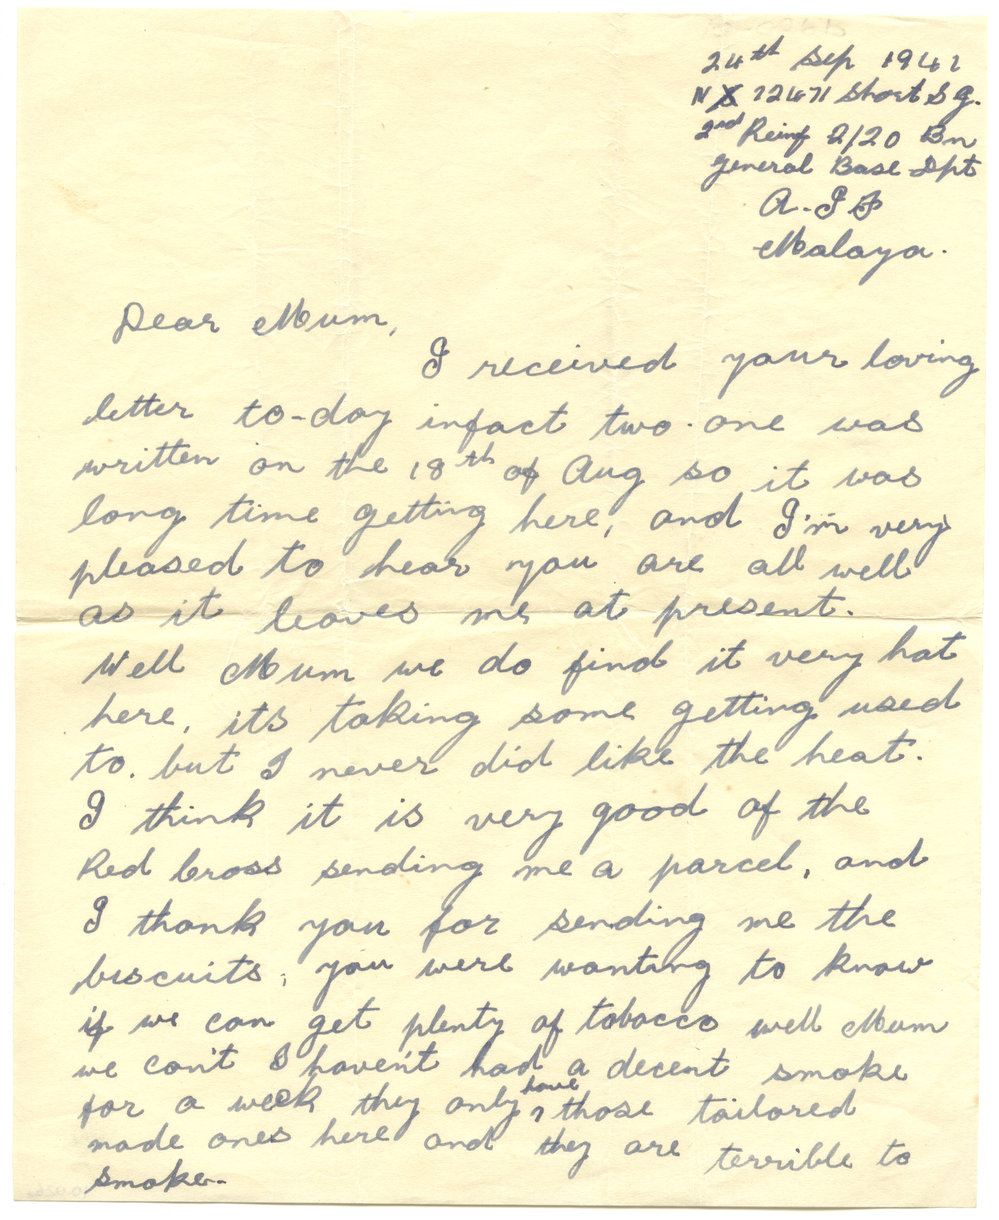 24th Sep 1941
NX 72471 Short S G.
2nd Reinf 2/20 Bn
General Base Dpt
A.I F
Malaya.
Dear Mum,
I received your loving
letter to-day infact two. one was
written on the 18th of Aug so it was
long time getting here, and I'm very
pleased to hear you are all well
as it leaves me at present.
Well Mum we do find it very hot
here, its taking some getting used
to. but I never did like the heat.
I think it is very good of the
Red Cross sending me a parcel, and
I thank you for sending me the
biscuits, you were wanting to know
if we can get plenty of tobacco well Mum
we can't I haven't had a decent smoke
for a week they only have those tailored
made ones here and they are terrible to
smoke.